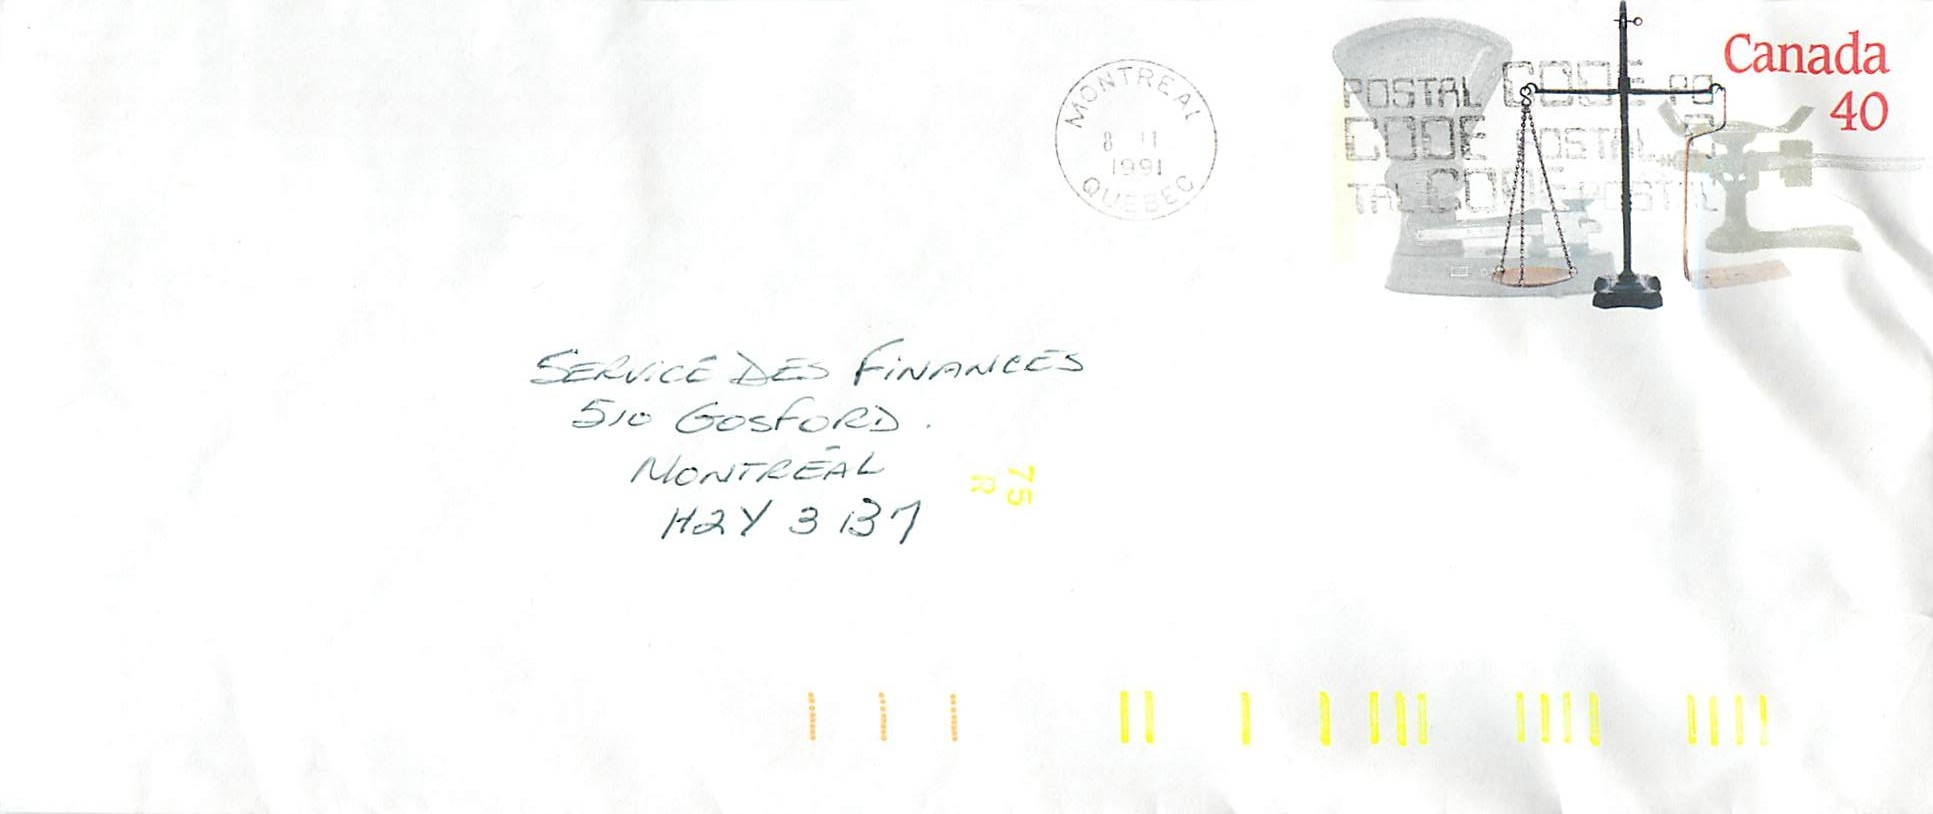 MONTREAL
8 11
1991
QUEBEC
POSTAL CODE PO
CODE POSTAL
TAL CODE POSTAL
Canada
40
SERVICE DES FINANCES
510 GOSFORD.
MONTRÉAL
H2Y 3B7
75
R